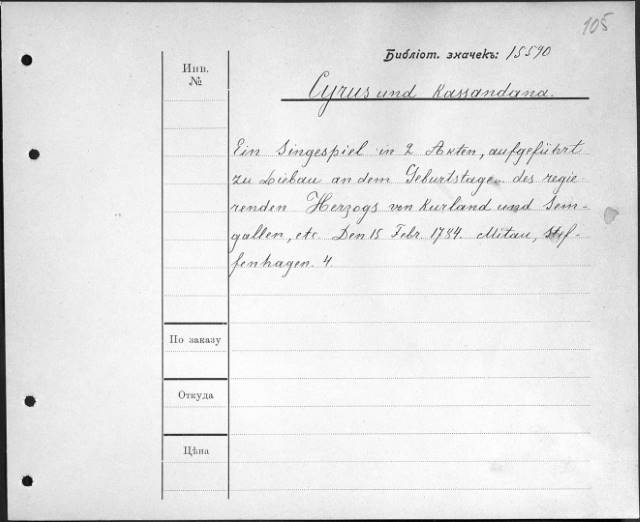 105
Библіот. значекъ: 15590
Инв.
№
Cyrus und Kassandana.
Ein Singespiel in 2 Akten, aufgeführt
zu Liebau an dem Geburtstage des regie
renden Herzogs von Kurland und Sem-
gallen, etc. Den 15 Febr. 1784. Mitau, Stef-
fenhagen. 4.
По заказу
Откуда
Цѣна